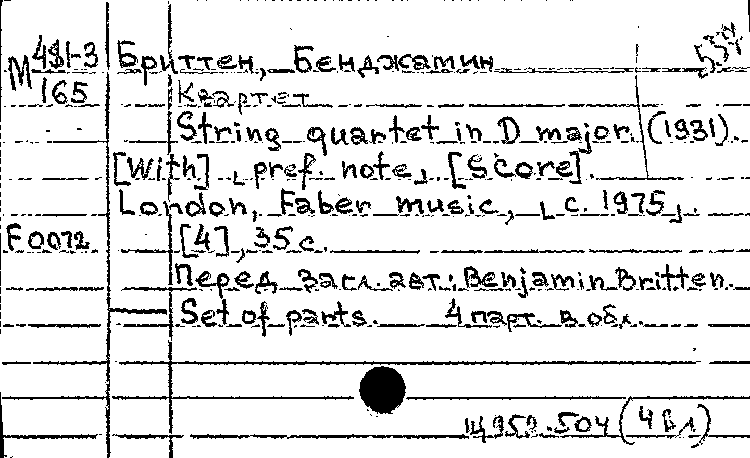 М 481-3 Бриттен, Бенджамин
165 Квартет
String quartet in D major. (1931).
[With] ⌞pref. note⌟ [Score].
London, Faber music, ⌞c. 1975⌟.
F0072 [4], 35 с.
Перед загл. авт.: Benjamin Britten.
Set of parts. 4 парт. в обл.
(4 вл)